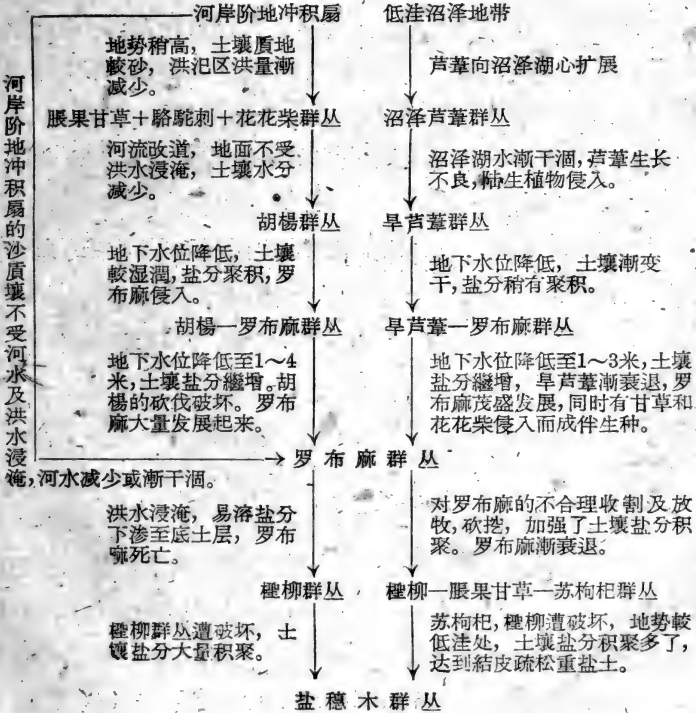 河岸阶地冲积扇
低洼沼泽地带
地势稍高，土壤质地
較砂，洪汜区洪量漸
減少。
芦葦向沼泽湖心扩展
脹果甘草＋駱駝刺＋花花柴群丛
沼泽芦葦群丛
河流改道，地面不受
洪水浸淹，土壤水分
减少。
沼泽湖水漸干涸，芦葦生长
不良，陆生植物侵入。
胡楊群丛
旱芦葦群丛
地下水位降低，土壤
較湿潤，盐分聚积，罗
布麻侵入。
地下水位降低，土壤漸变
干，盐分稍有聚积。
胡楊—罗布麻群丛
旱芦葦—罗布麻群丛
地下水位降低至1～4
米，土壤盐分繼增。胡
楊的砍伐破坏。罗布
麻大量发展起来。
地下水位降低至1～3米，土壤
盐分繼增，旱芦葦漸衰退，罗
布麻茂盛发展，同时有甘草和
花花柴侵入而成伴生种。
河岸阶地冲积扇的沙质壤不受河水及洪水浸
淹，河水减少或漸干涸。
罗布麻群丛
洪水浸淹，易溶盐分
下渗至底土层，罗布
麻死亡。
对罗布麻的不合理收割及放
牧，砍挖，加强了土壤盐分积
聚。罗布麻漸衰退。
檉柳群丛
檉柳—脹果甘草—苏枸杞群丛
檉柳群丛遭破坏，土
壤盐分大量积聚。
苏枸杞，檉柳遭破坏，地势較
低洼处，土壤盐分积聚多了，
达到結皮疏松重盐土。
盐穗木群丛